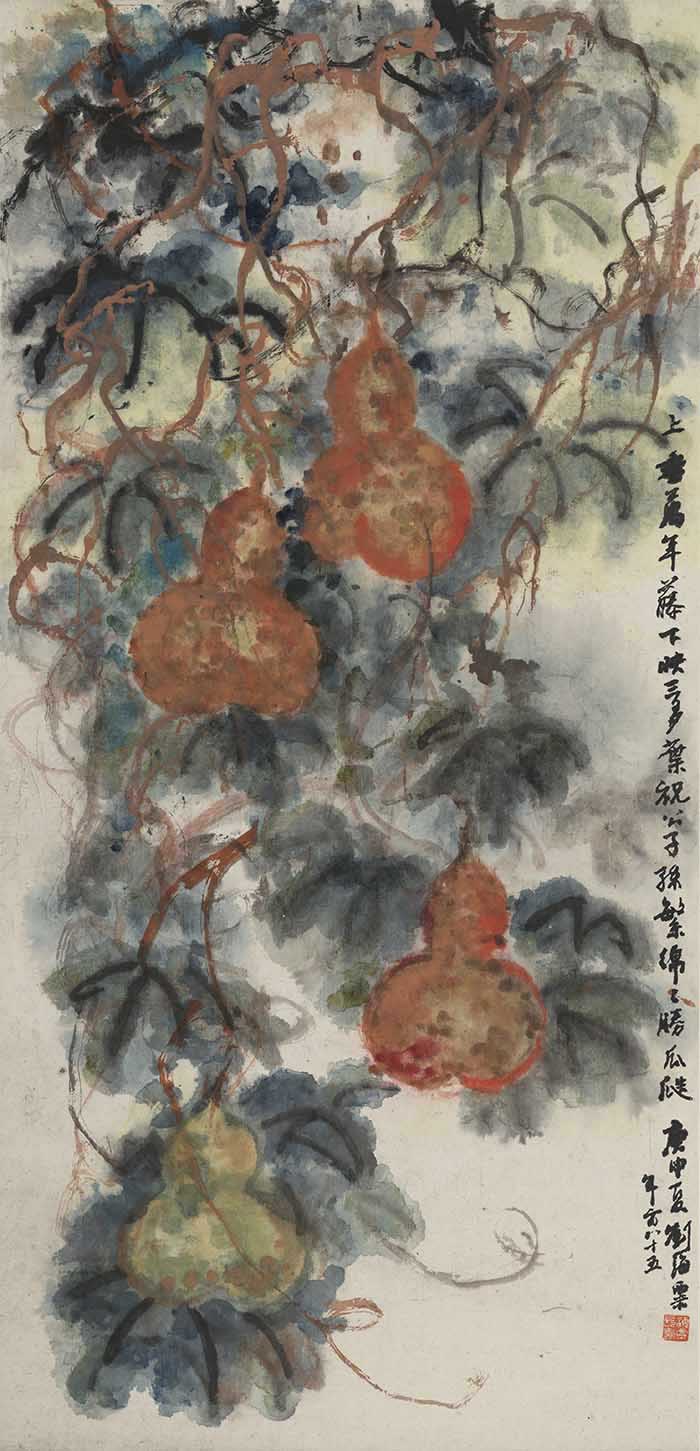 上垂萬年藤下映三多葉祝公子孫繁綿々勝瓜瓞
庚申夏劉海粟
年方八十五